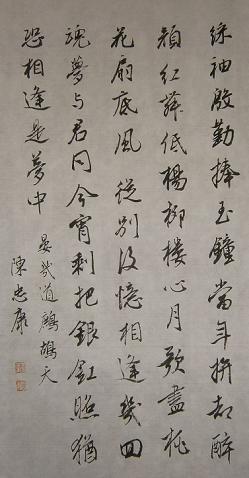 綵袖殷勤捧玉鐘當年拚却醉
顏紅舞低楊柳樓心月歌盡桃
花扇底風從別後憶相逢幾回
魂夢与君同今宵剩把銀釭照猶
恐相逢是夢中
晏幾道鷓鴣天
陳忠康